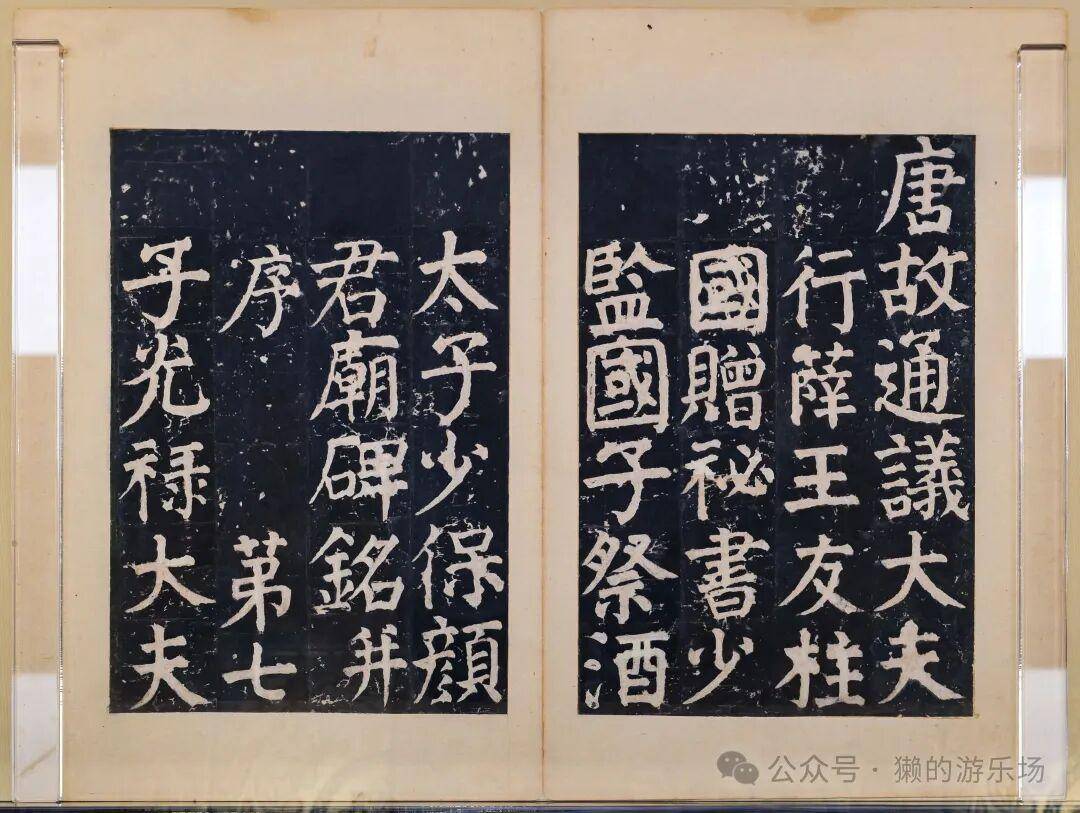 唐故通議大夫
行薛王友柱
國贈祕書少
監國子祭酒
太子少保顔
君廟碑銘并
序 第七
子光禄大夫
公众号 · 獭的游乐场